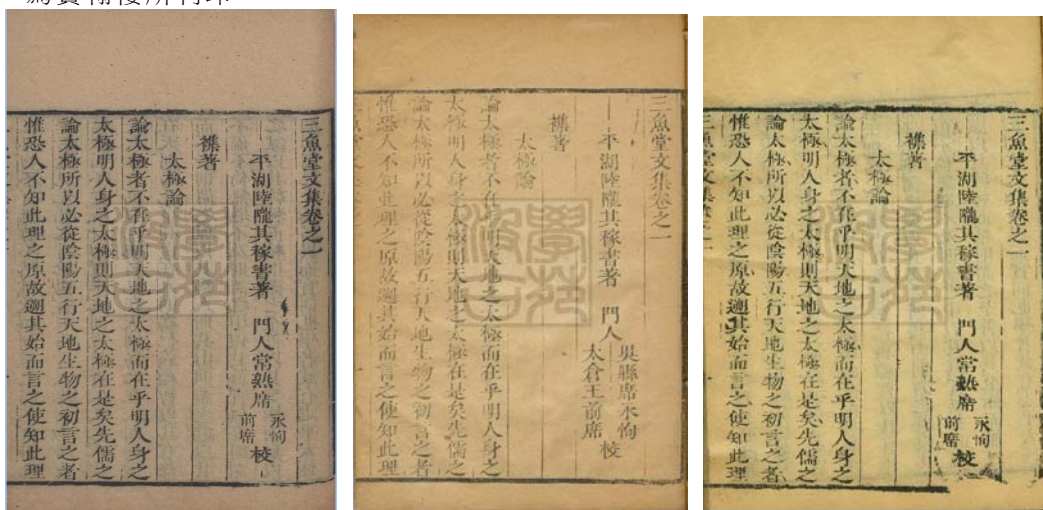 三魚堂文集卷之一
平湖陸隴其稼書著 門人常熟席永恂前席校
襍著
太極論
論太極者不在乎明天地之太極而在乎明人身之
太極明人身之太極則天地之太極在是矣先儒之
論太極所以必從陰陽五行天地生物之初言之者
惟恐人不知此理之原故遡其始而言之使知此理
三魚堂文集卷之一
平湖陸隴其稼書著 門人吳縣席永恂太倉王前席校
襍著
太極論
論太極者不在乎明天地之太極而在乎明人身之
太極明人身之太極則天地之太極在是矣先儒之
論太極所以必從陰陽五行天地生物之初言之者
惟恐人不知此理之原故遡其始而言之使知此理
三魚堂文集卷之一
平湖陸隴其稼書著 門人常熟席永恂前席校
襍著
太極論
論太極者不在乎明天地之太極而在乎明人身之
太極明人身之太極則天地之太極在是矣先儒之
論太極所以必從陰陽五行天地生物之初言之者
惟恐人不知此理之原故遡其始而言之使知此理
學苑汲古
學苑汲古
學苑汲古